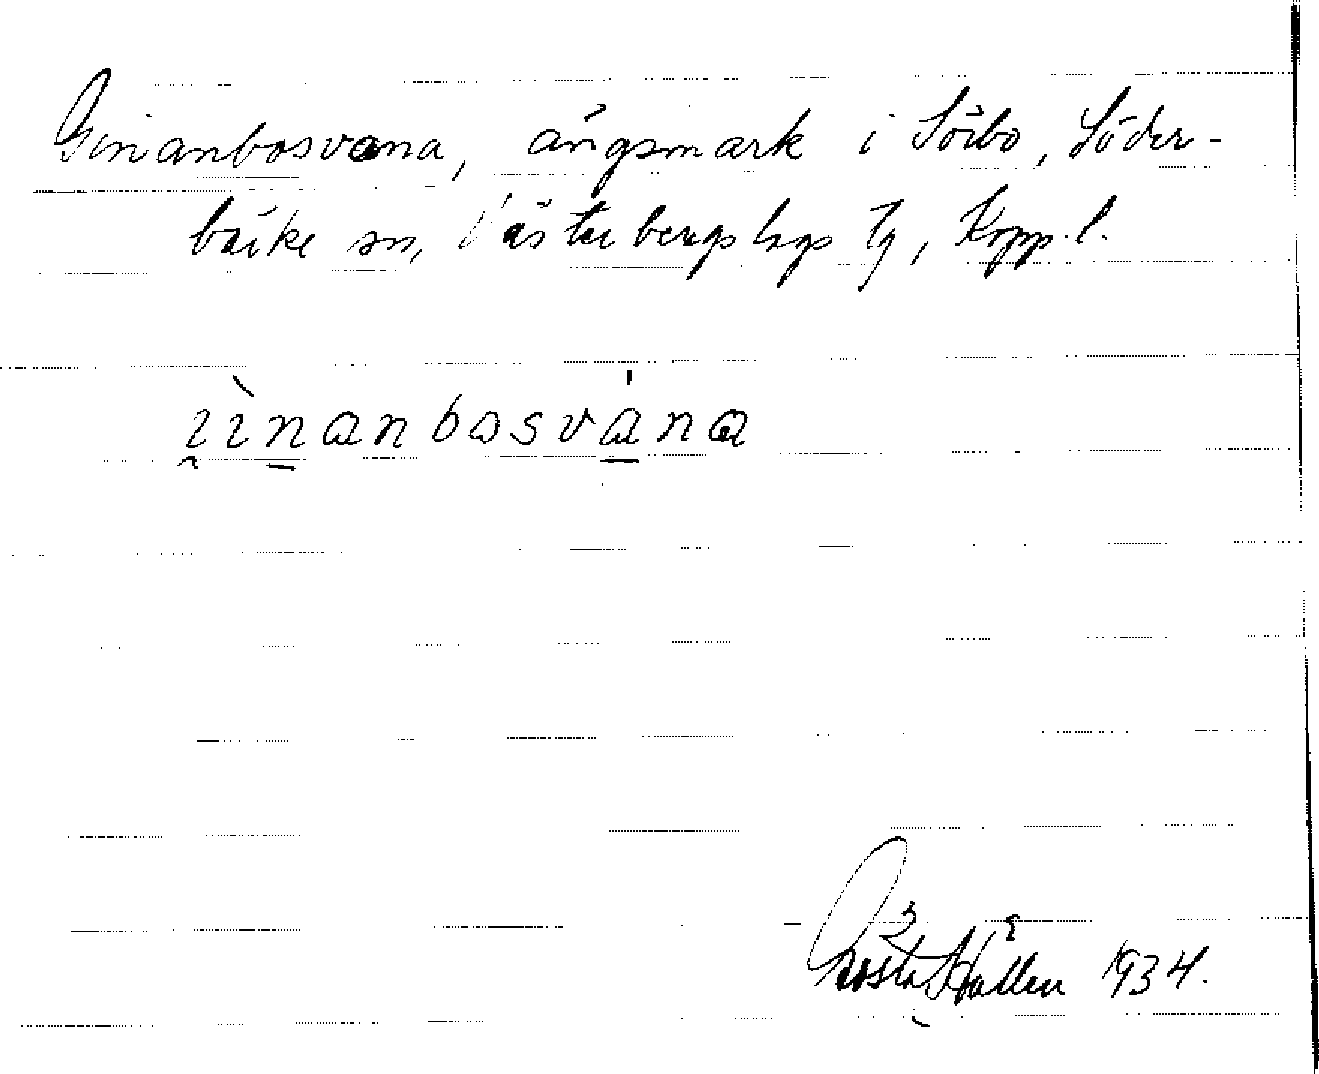 Ginanbosvana, ängsmark i Sörbo, Söder-
bärke sn, Västerbergslags tg, Kopp. l.
ıìnanbosvána
Gösta Hållen 1934.